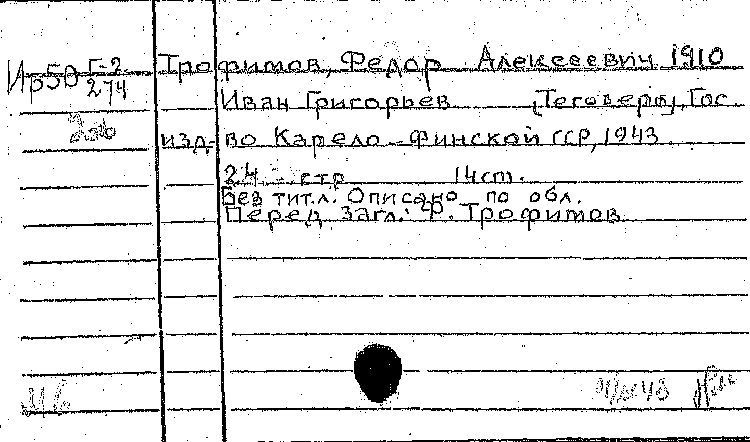 Ир50 Г-2 Трофимов, Федор Алексеевич 1910
274
Иван Григорьев [Беговеро], Гос.
2об изд-во Карело-Финской ССР, 1943
24 стр 14cm.
Без титл. Описано по обл.
Перед загл.: Ф. Трофимов